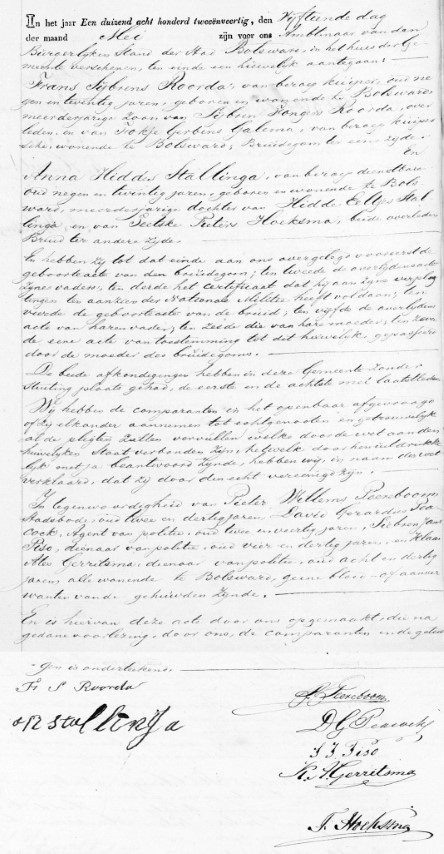 In het jaar Een duizend acht honderd tweeënveertig, den Vijftiende dag
der maand Mei zijn voor ons Ambtenaar van den
Burgerlijken Stand der Stad Bolsward, in het huis der Ge-
meente verschenen, ten einde een huwelijk aantegaan:
Frans Sijbrens Roorda, van beroep kuiper, oud ne-
gen en twintig jaren, geboren en wonende te Bolsward,
meerderjarige zoon van Sijbren Roorda, over-
leden, en van Fokje Gerbens Galema, van beroep
wonende te Bolsward, Bruidegom ter eene zyde.
En
Anna Hiddes Stallinga, van beroep dienstbare
oud negen en twintig jaren, geboren en wonende te Bols-
ward, meerderjarige dochter van Hidde Eeltjes Stal
linga, en van Seelske Pieters Hoeksma, beide overleden
Bruid ter andere zyde.
En hebben zij tot dat einde aan ons overgelegd vooreerst de
geboorteacte van den bruidegom; ten tweede de overlijdensacte
zynes vaders; ten derde het certificaat dat hij aan zijne verplig
tingen ten aanzien der Nationale Militie heeft voldaan; ten
vierde de geboorteacte van de bruid; ten vijfde de overlijdens
acte van haren vader; ten zesde die van hare moeder; ten zeven
de eene acte van toestemming tot dit huwelijk, gepasseerd
door de moeder des bruidegoms.
De beide afkondigingen hebben in deze Gemeente zonder
Stuiting plaats gehad, de eerste en de achtste mei laatstleden
Wij hebben de comparanten in het openbaar afgevraagd
of zij elkander aannemen tot echtgenooten en getrouwelijk
al de pligten zullen vervullen welke door de wet aan den
huwelijken Staat verbonden zijn; hetwelk door hen uitdrukke
lijk met ja, beantwoord zynde, hebben wij in naam der wet
verklaard, dat zij door den echt vereenigd zijn.
In tegenwoordigheid van Pieter Willems Peenboom
Stadsbode, oud twee en dertig jaren, David Gerardus Pea-
cock, Agent van politie, oud twee en veertig jaren, Sijbren Jans
Piso, dienaar van politie, oud vier en dertig jaren, en Klaas
Ales Gerritsma, dienaar van politie, oud acht en dertig
jaren, alle wonende te Bolsward, geene bloed- of aanver
wanten van de gehuwden zynde.
En is hiervan deze acte door ons opgemaakt die na
gedane voorlezing, door ons, de comparanten en de getui-
gen is onderteekend.
Fr S Roorda
Stallinga
Peenboom
D G Peacock
S J Piso
K A Gerritsma
Hoeksma